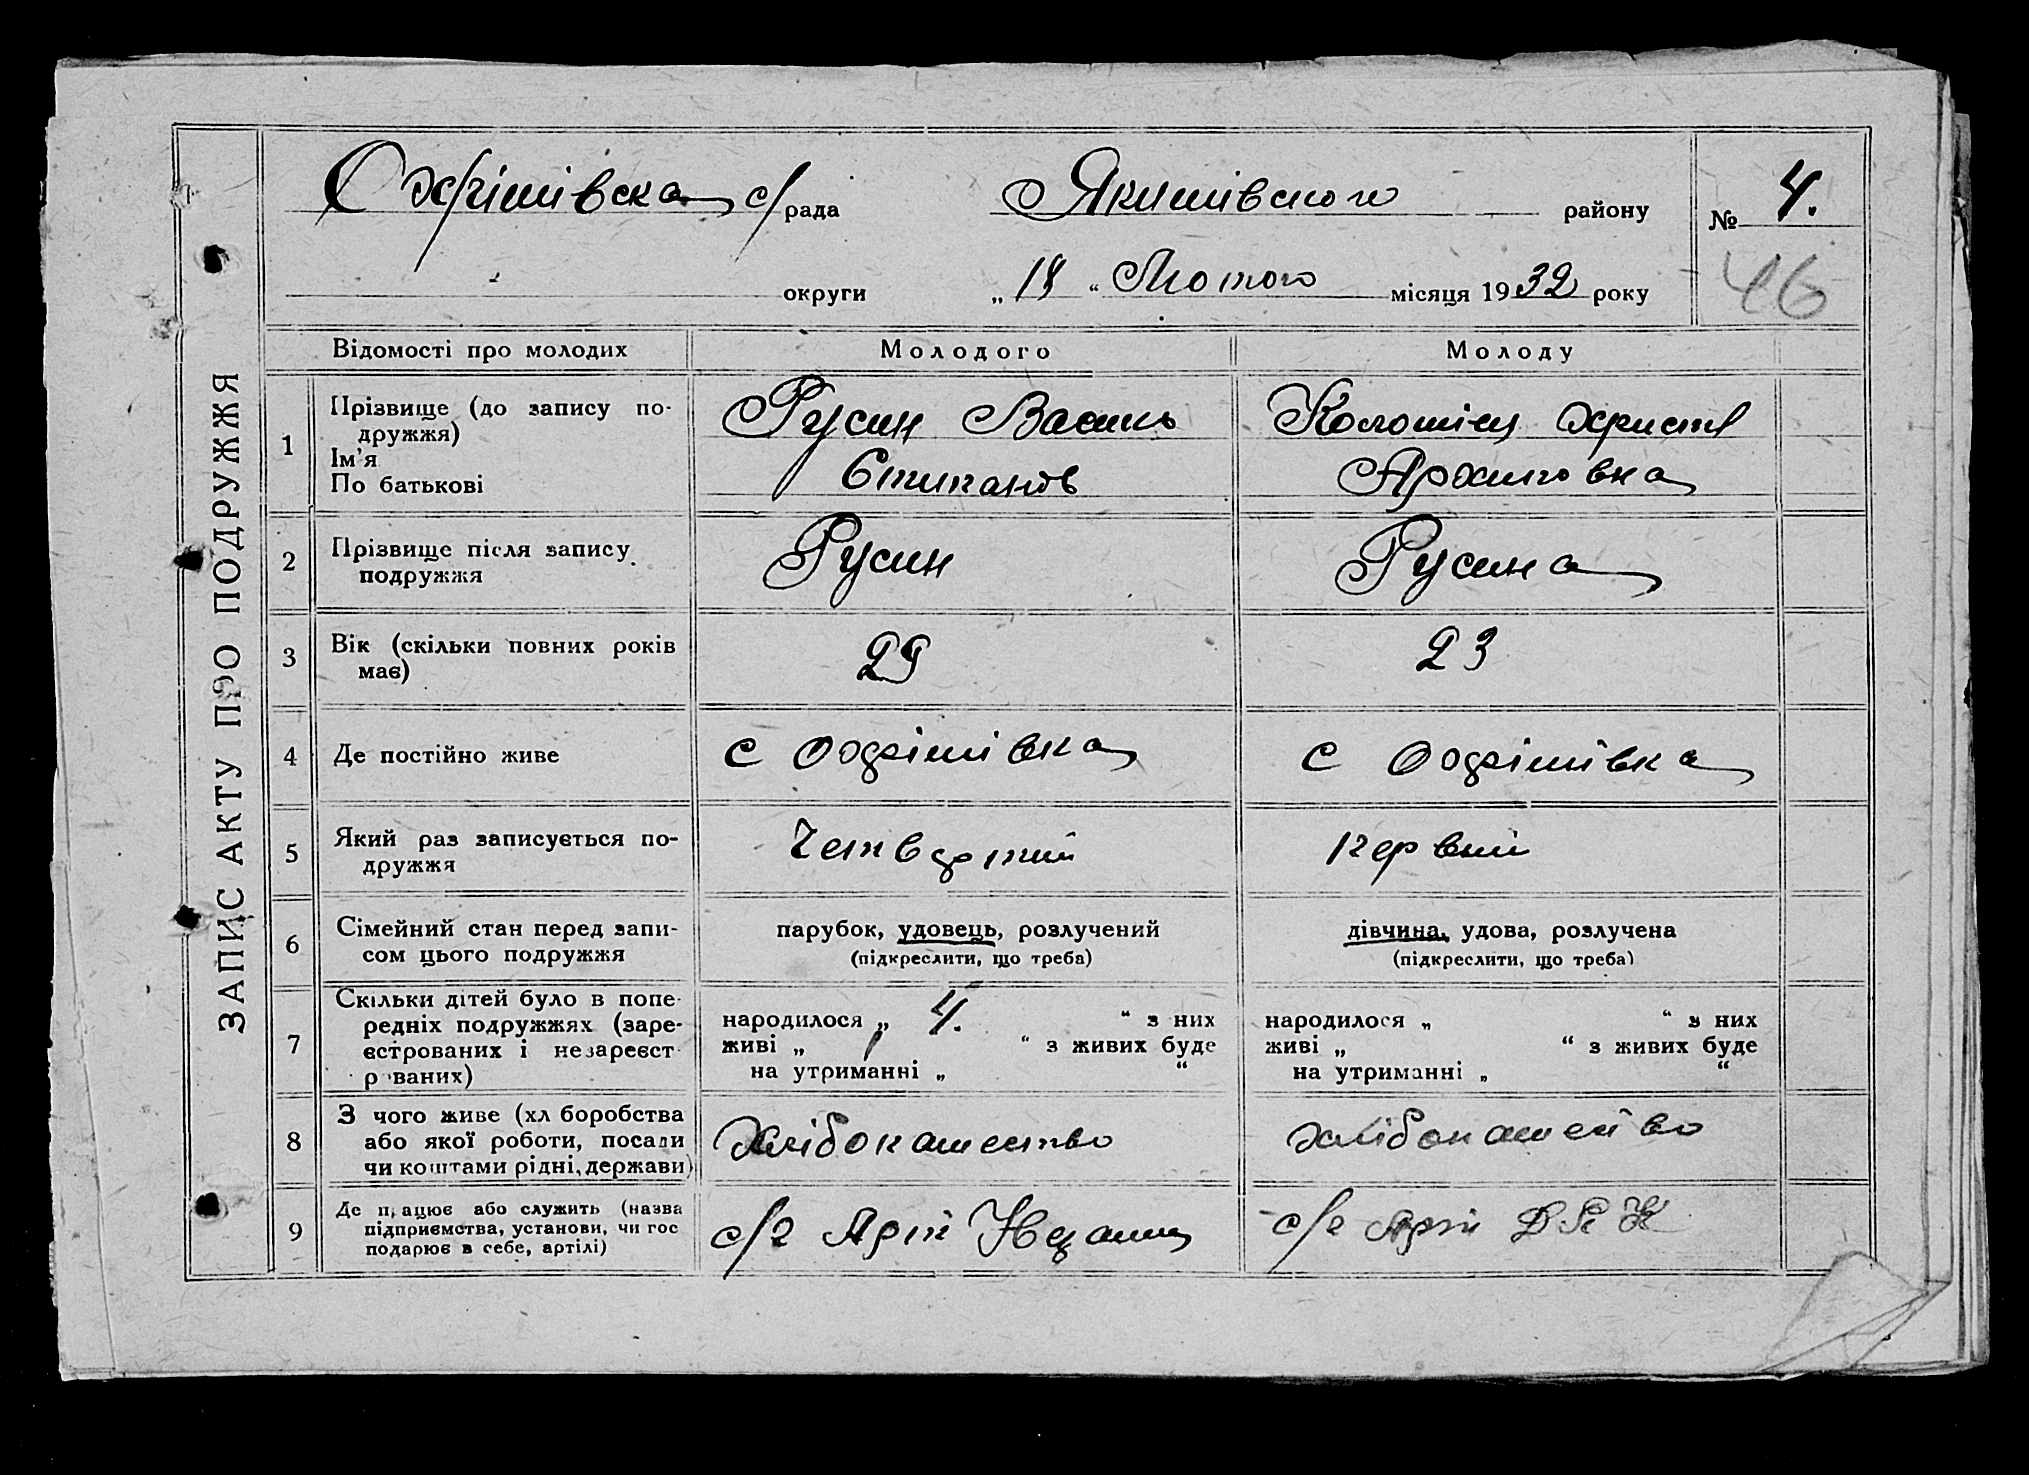 ЗАПИС АКТУ ПРО ПОДРУЖЖЯ
Охрімівска с/рада Якимівского району № 4.
округи „18“ Лютого місяця 1932 року 46
Відомості про молодих Молодого Молоду
1 Прізвище (до запису по-
дружжя)
Ім'я
По батькові
Русин Василь
Степанов
Коломієц Христя
Архиповна
2 Прізвище після запису
подружжя
Русин
Русина
3 Вік (скільки повних років
має)
29
23
4 Де постійно живе
с Охрімівка
с Охрімівка
5 Який раз записується по-
дружжя
Четвертий
первий
6 Сімейний стан перед запи-
сом цього подружжя
парубок, удовець, розлучений
(підкреслити, що треба)
дівчина, удова, розлучена
(підкреслити, що треба)
7 Скільки дітей було в попе-
редніх подружжях (заре-
єстрованих і незареєст-
р ваних)
народилося „ 4. “ з них
живі „ 1 “ з живих буде
на утриманні „ “
народилося „ “ з них
живі „ “ з живих буде
на утриманні „ “
8 З чого живе (хл боробства
або якої роботи, посади
чи коштами рідні, держави)
хлібопашество
9 Де працює або служить (назва
підприємства, установи, чи гос
подарює в себе, артілі)
с/г Арті
с/г Арті